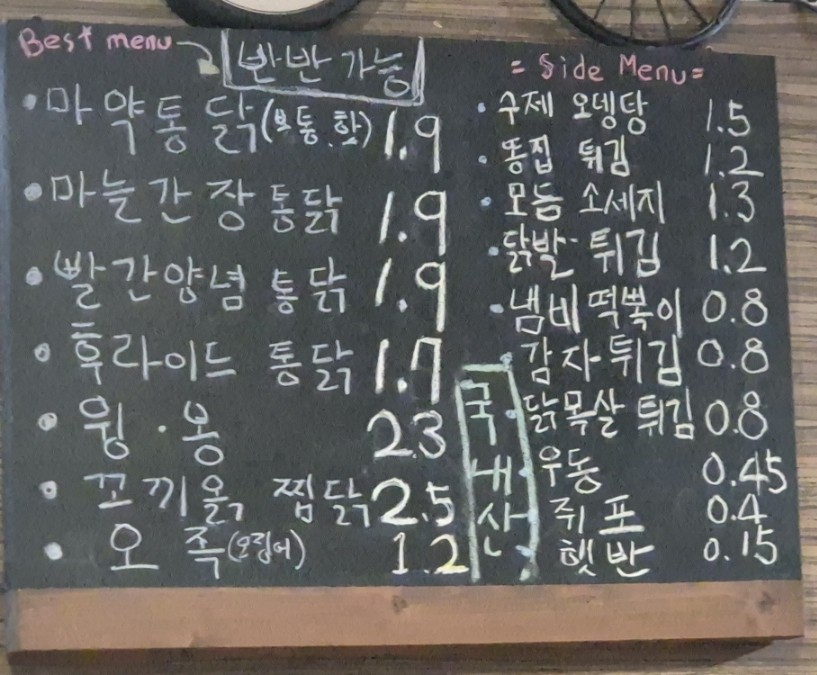 Best menu → 반반 가능
· 마약통닭(보통.핫) 1.9
· 마늘간장통닭 1.9
· 빨간양념 통닭 1.9
· 후라이드 통닭 1.7
· 윙·봉 23
· 꼬끼옭, 찜닭 2.5
· 오족(오징어) 1.2
= Side Menu =
· 수제 오뎅탕 1.5
· 똥집 튀김 1.2
· 모듬 소세지 1.3
· 닭발·튀김 1.2
· 냄비떡뽁이 0.8
· 감자튀김 0.8
· 닭목살 튀김 0.8
· 우동 0.45
· 쥐포 0.4
· 햇반 0.15
국내산